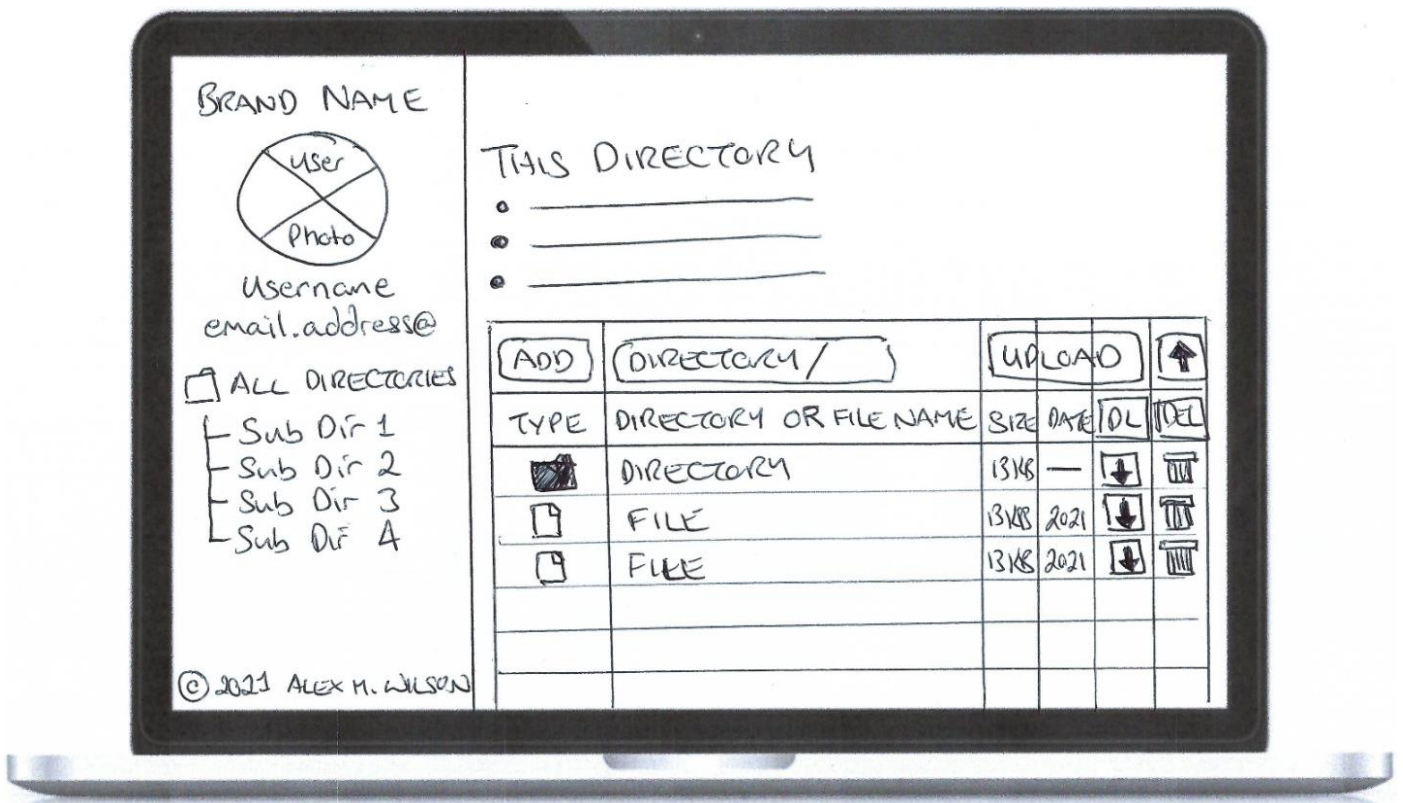 BRAND NAME
User
Photo
Username
email.address@
ALL DIRECTORIES
Sub Dir 1
Sub Dir 2
Sub Dir 3
Sub Dir 4
© 2021 ALEX M. WILSON
THIS DIRECTORY
ADD DIRECTORY/ UPLOAD
TYPE DIRECTORY OR FILE NAME SIZE DATE DL DEL
DIRECTORY 13KB —
FILE 13KB 2021
FILE 13KB 2021